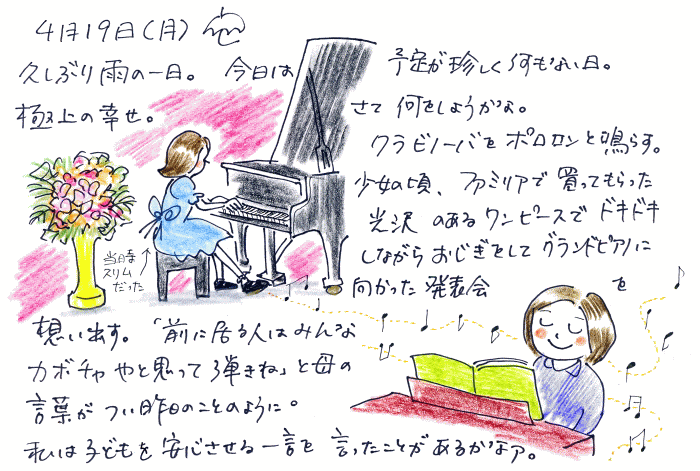 4月19日(月)
久しぶり雨の一日。 今日は 予定が珍しく何もない日。
極上の幸せ。 さて 何をしようかな。
クラビノーバを ポロロンと鳴らす。
少女の頃、ファミリアで 買ってもらった
光沢 のあるワンピースで ドキドキ
しながら おじぎをして グランドピアノに
向かった 発表会 を
当時
スリム
だった
想い出す。「前に居る人はみんな
カボチャ やと思って 弾きね」と母の
言葉が つい昨日のことのように。
私は子どもを 安心させる 一言を 言ったことが あるかなァ。